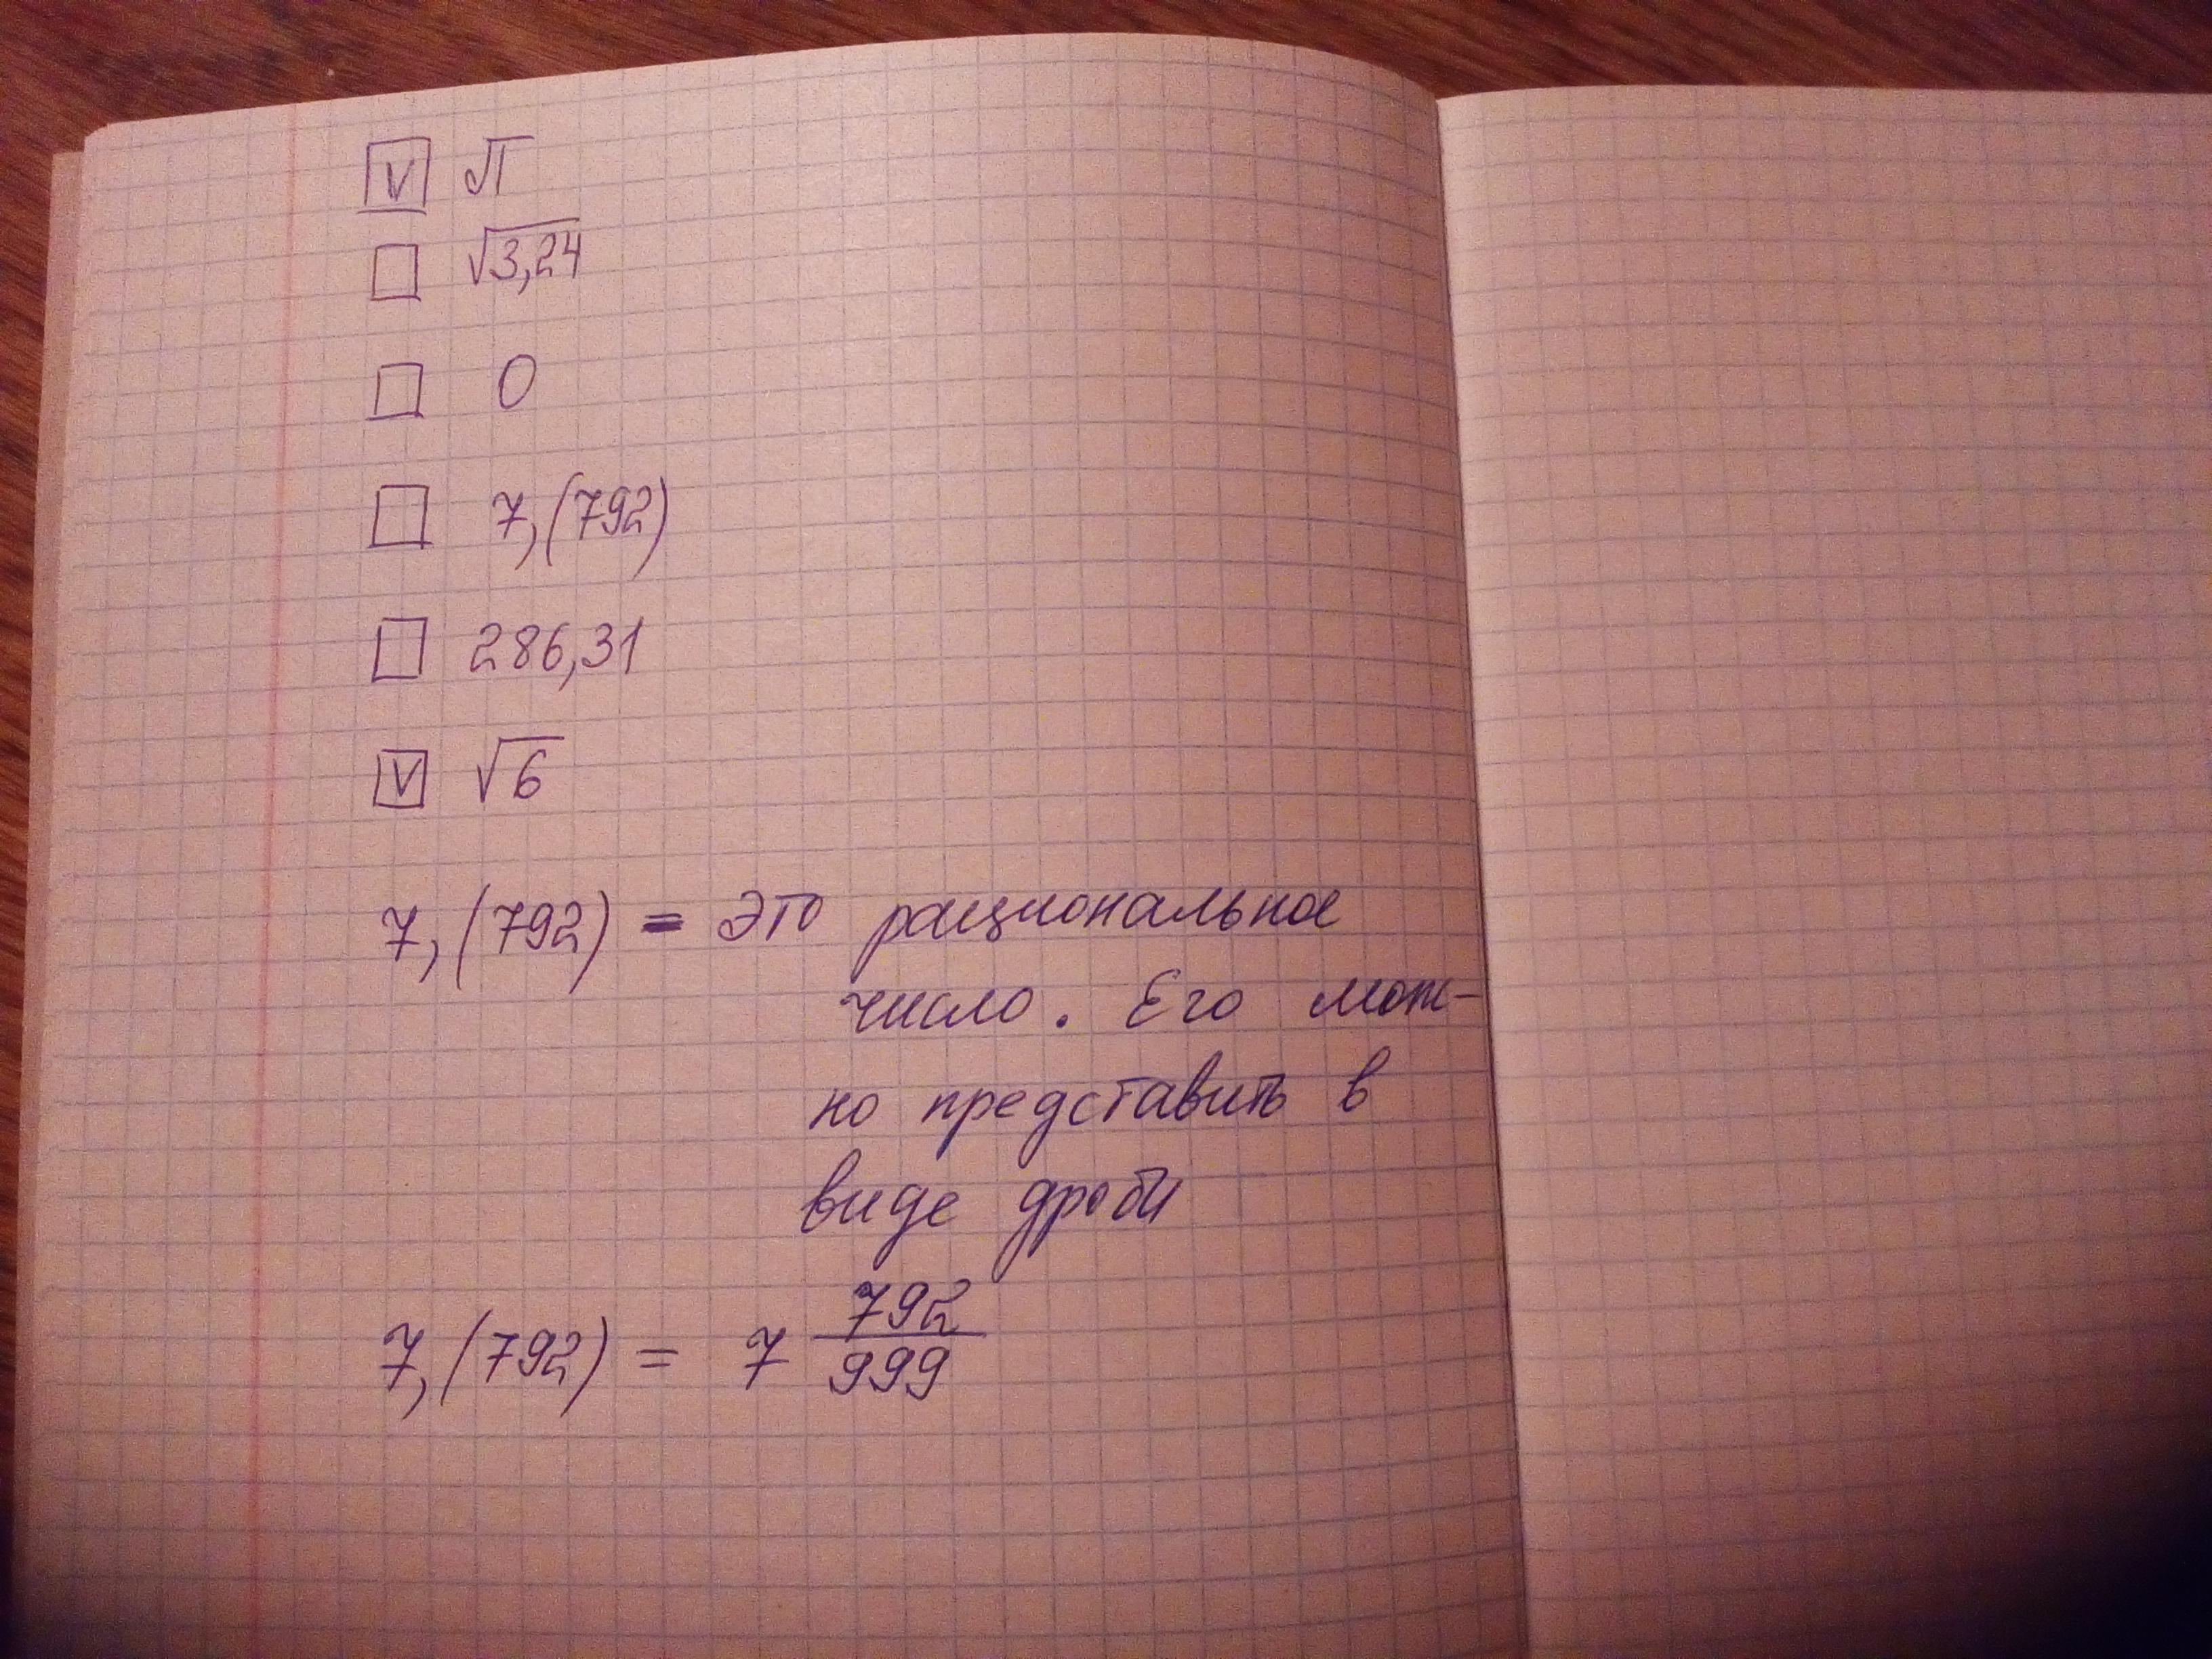 ☑ π
☐ √3,24
☐ 0
☐ 7,(792)
☐ 286,31
☑ √6
7,(792) = это рациональное
число. Его мож-
но представить в
виде дроби
7,(792) = 7 792/999